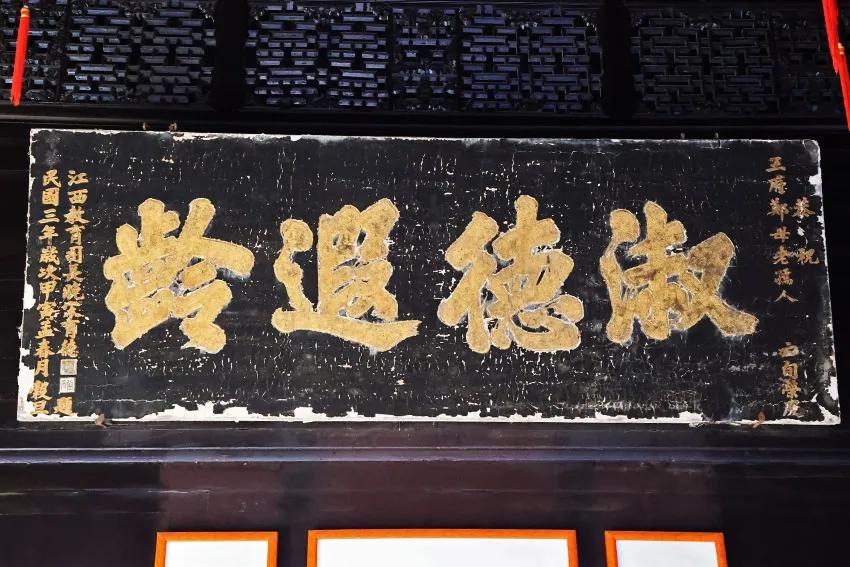 恭祝
鄭母老孺人
六旬榮慶
淑德遐齡
江西教育司長宋育德題
民國三年歲次甲寅孟春月穀旦